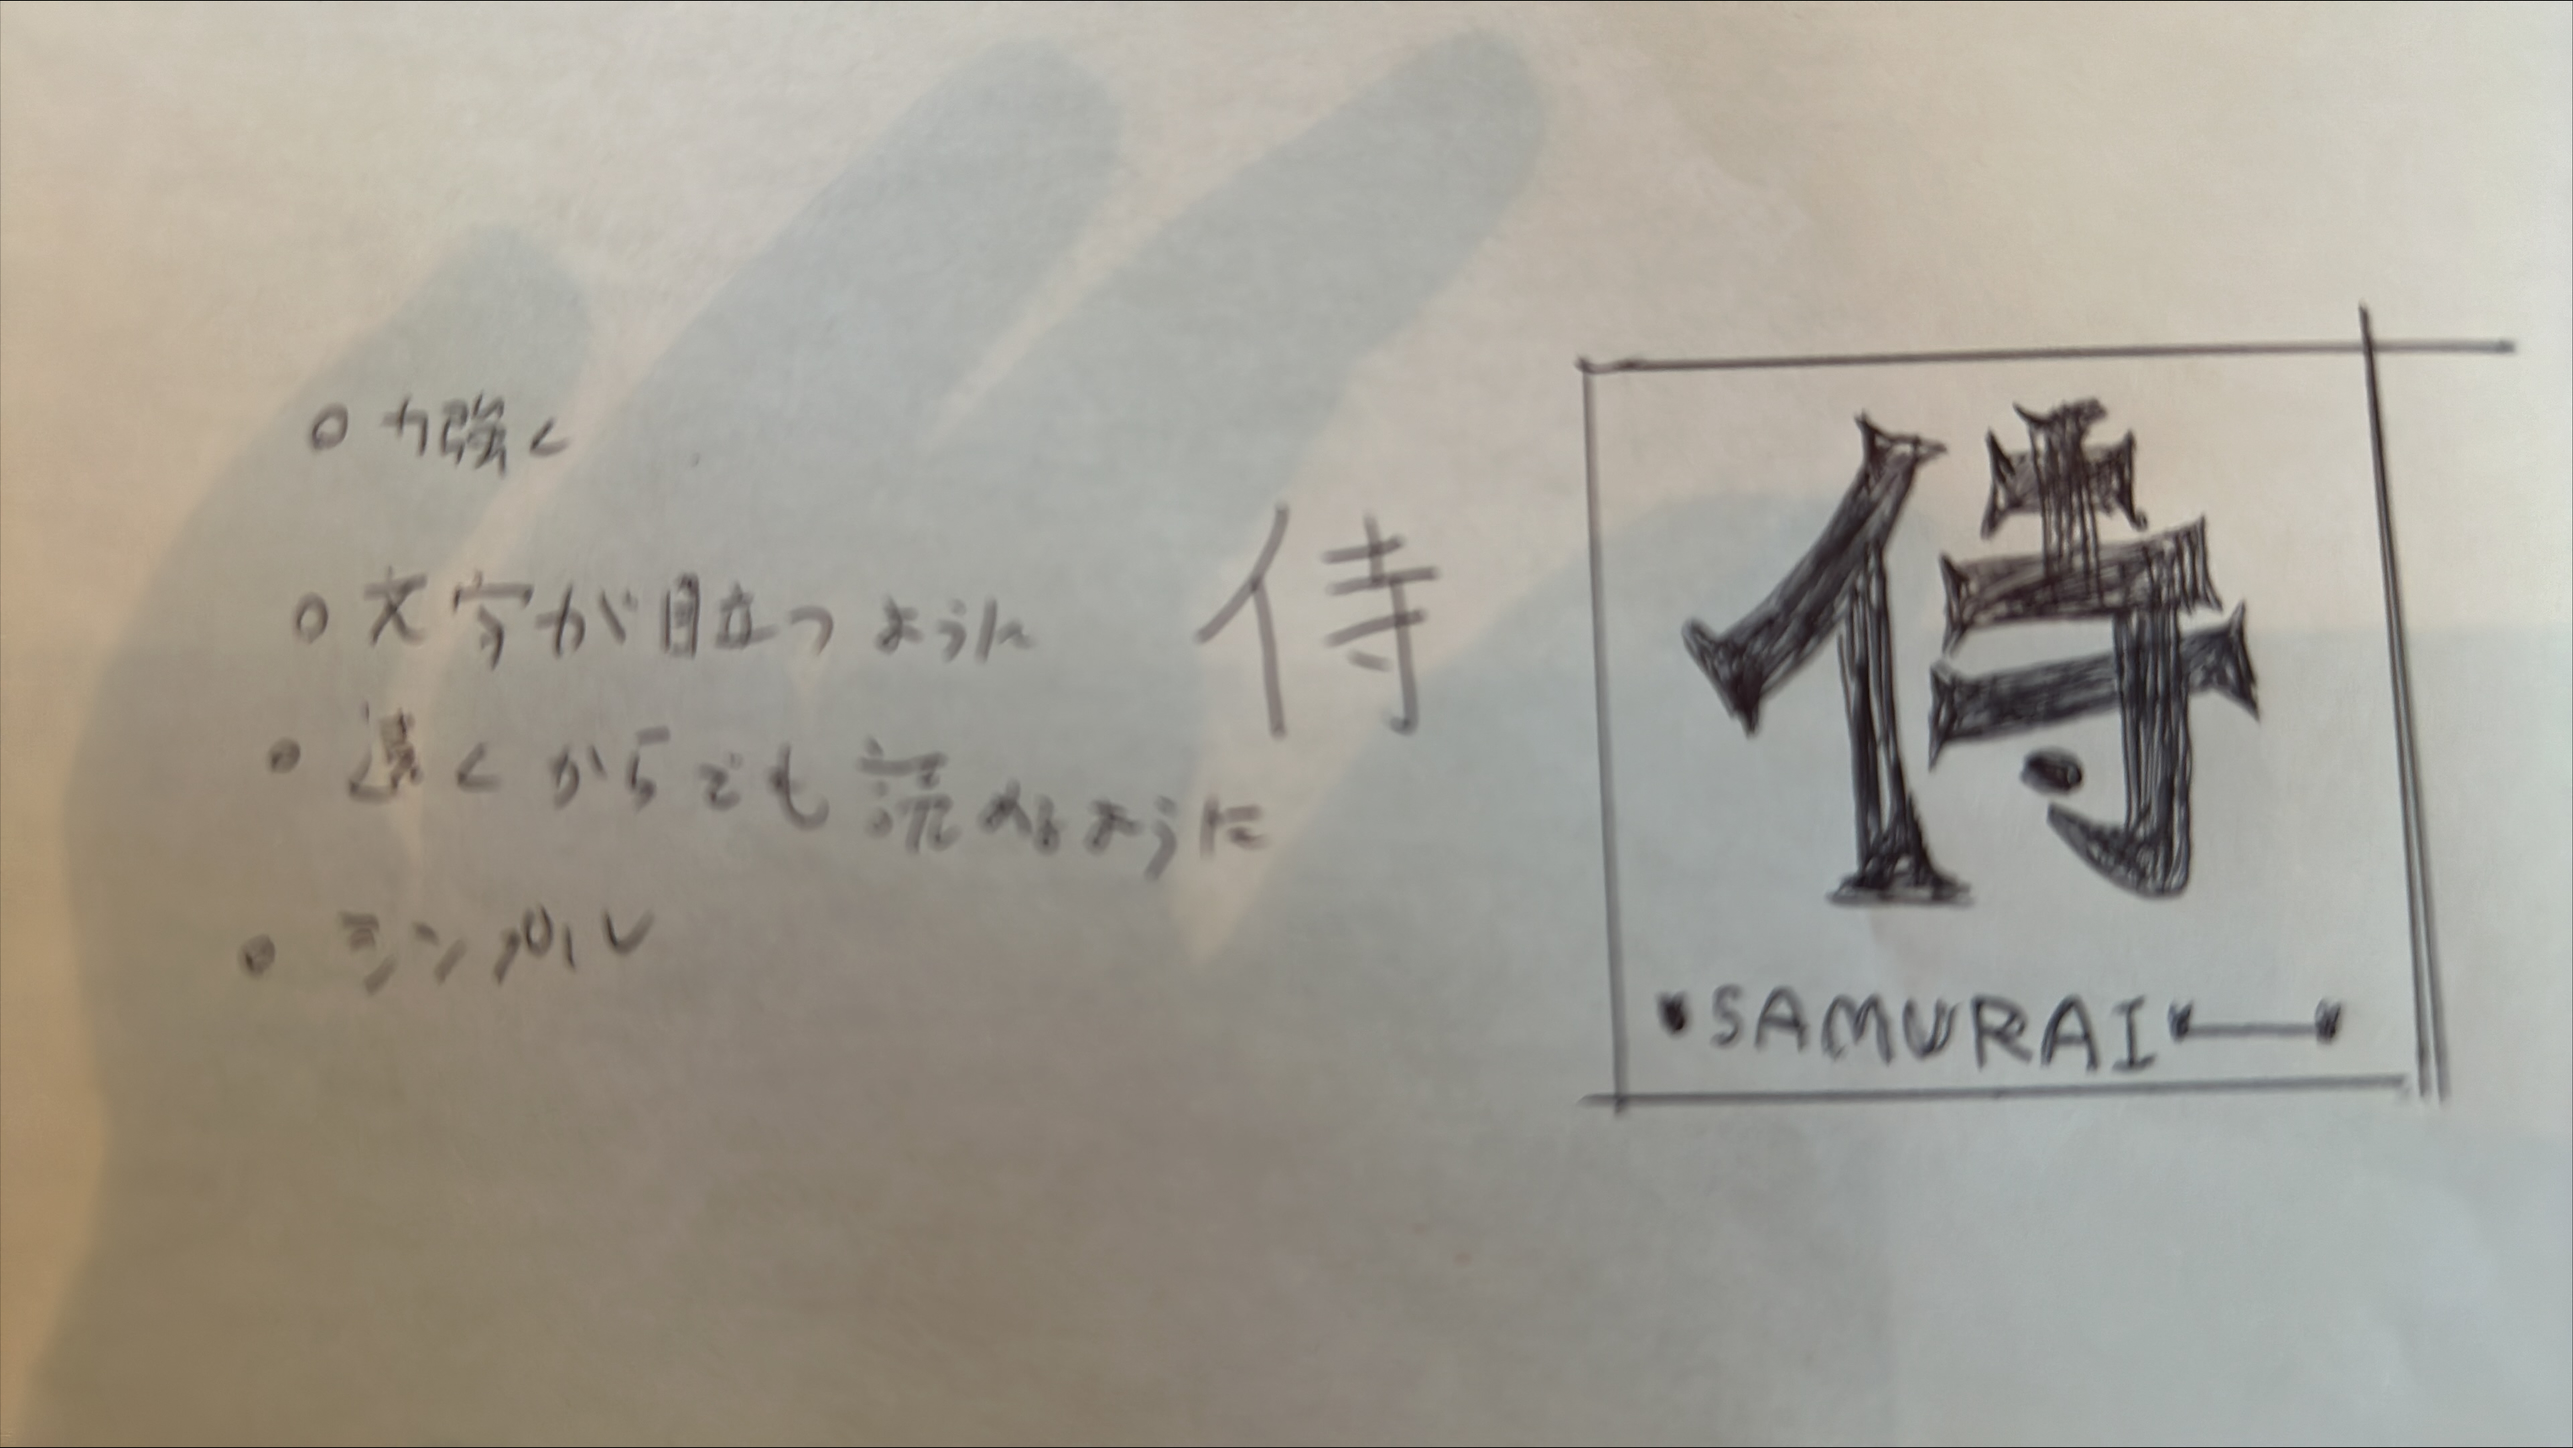 力強く
文字が目立つように
遠くからでも読めるように
シンプル
侍
侍
SAMURAI